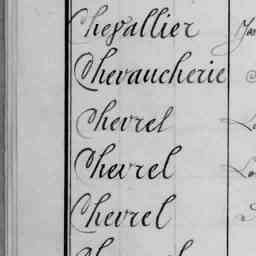 Chevallier
Chevaucherie
Chevrel
Chevrel
Chevrel